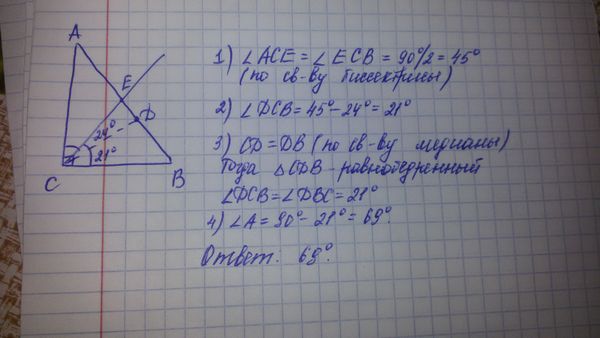 A
E
D
24°
21°
C
B
1) ∠ACE = ∠ECB = 90°/2 = 45°
(по св-ву биссектрисы)
2) ∠DCB = 45° - 24° = 21°
3) CD = DB (по св-ву медианы)
Тогда △CDB - равнобедренный
∠DCB = ∠DBC = 21°
4) ∠A = 90° - 21° = 69°.
Ответ. 69°.